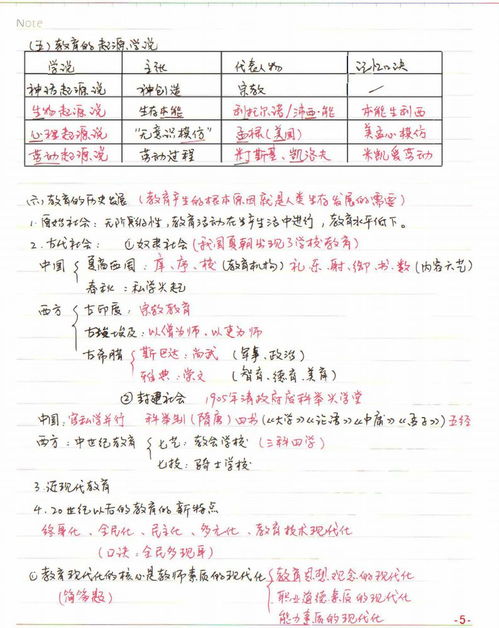 Note
(五)教育的起源学说
学说 主张 代表人物 记忆口诀
神话起源说 神创造 宗教 —
生物起源说 生存本能 利托尔诺/沛西·能 本能生利西
心理起源说 "无意识模仿" 孟禄(美国) 美孟心模仿
劳动起源说 劳动过程 米丁斯基、凯洛夫 米凯爱劳动
(六)教育的历史发展 (教育产生的根本原因就是人类生存发展的需要)
1.原始社会:无阶级性,教育活动在生产生活中进行,教育水平低下。
2.古代社会: ①奴隶社会(我国夏朝出现了学校教育)
中国 夏商西周:庠、序、校(教育机构)礼、乐、射、御、书、数(内容六艺)
春秋:私学兴起
西方 古印度:宗教教育
古埃及:以僧为师、以吏为师
古希腊 斯巴达:尚武 (军事、政治)
雅典:崇文 (智育、德育、美育)
②封建社会 1905年清政府废科举兴学堂
中国:官私学并行 科举制(隋唐)四书(《大学》《论语》《中庸》《孟子》)五经
西方:中世纪教育 七艺:教会学校(三科四学)
七技:骑士学校
3.近现代教育
4.20世纪以后的教育的新特点
终身化、全民化、民主化、多元化、教育技术现代化
(口诀:全民多现身)
①教育现代化的核心是教师素质的现代化 教育思想观念的现代化
(简答题) 职业道德素质的现代化
能力素质的现代化
-5-